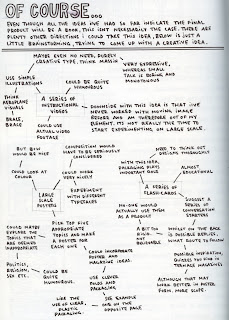 OF COURSE...
EVEN THOUGH ALL THE IDEAS I'VE HAD SO FAR INDICATE THE FINAL
PRODUCT WILL BE A BOOK, THIS ISN'T NECESSARILY THE CASE. THERE ARE
PLENTY OTHER DIRECTIONS I COULD TAKE THIS IDEA, BELOW IS JUST A
LITTLE BRAINSTORMING, TRYING TO COME UP WITH A CREATIVE IDEA.
MAYBE EVEN NO NEED, PURELY
CREATIVE TYPE, THINK
VERY EXPRESSIVE,
WHEREAS SMALL
TALK IS BORING AND
MONOTONOUS
USE SIMPLE
ILLUSTRATIONS
COULD BE QUITE
HUMOROUS
THINK
AEROPLANE
VISUALS
BRACE,
BRACE
A SERIES OF
INSTRUCTIONAL
VIDEOS
COULD USE
ACTUAL VIDEO
FOOTAGE
DOWNSIDE WITH THIS IDEA IS THAT I'VE
NEVER WORKED WITH MOVING IMAGE
BEFORE AND AM THEREFORE OUT OF MY
ELEMENT, IT'S NOT REALLY THE TIME TO
START EXPERIMENTING ON LARGE SCALE.
BUT
WOULD BE NICE
COMPOSITION WOULD
HAVE TO BE SERIOUSLY
CONSIDERED
COULD LOOK AT
COLOUR
COULD WORK
VERY NICELY
WITH THIS IDEA,
PACKAGING PLAYS
IMPORTANT ROLE
NEED TO THINK OUT
DESIGNS THOROUGHLY
ALMOST
EDUCATIONAL
LARGE
SCALE
POSTERS
EXPERIMENT
WITH DIFFERENT
TYPEFACES
A SERIES OF
FLASH CARDS
SUGGEST A
SERIES OF
CONVERSATION
STARTERS
NO-ONE WOULD
ACTUALLY USE THEM
AS A PRODUCT
PICK TOP FIVE
APPROPRIATE
TOPICS AND MAKE
A POSTER FOR
EACH ONE
COULD MAYBE
EXPLORE THE
TOPICS THAT
ARE DEEMED
INAPPROPRIATE
A BIT
TOO
UNUSABLE
WHILST ON THE BACK
IS POSSIBLE REPLIES,
WHAT ROUTE TO FOLLOW
COULD INCORPORATE
POSTER AND
MAGAZINE IDEAS.
POSSIBLE INSPIRATION,
QUIZZES YOU FIND IN
TEENAGE MAGAZINES
POLITICS,
RELIGION,
SEX ETC.
COULD BE
QUITE
HUMOROUS
USE CLEVER
FOLDS AND
PACKAGING
ALTHOUGH THAT MAY
WORK BETTER IN POSTER
FORM, MORE SCOPE
LIKE THE
USE OF CLEAR
PLASTIC
PACKAGING.
SEE EXAMPLE
ON THE
OPPOSITE PAGE